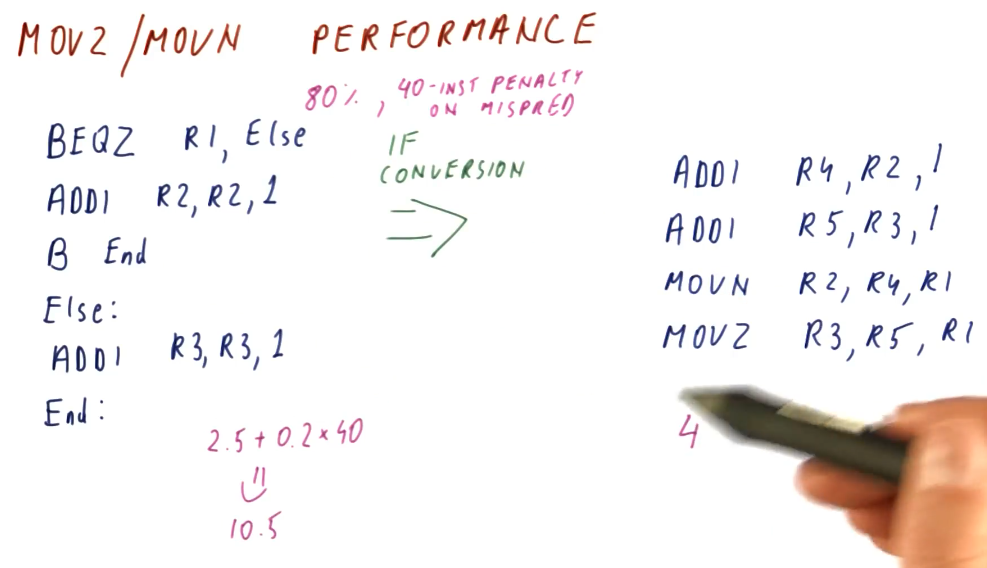 MOVZ/MOVN PERFORMANCE
80%, 40-INST PENALTY
ON MISPRED
BEQZ R1, Else
ADDI R2, R2, 1
B End
Else:
ADDI R3, R3, 1
End:
2.5 + 0.2 × 40
=
10.5
IF
CONVERSION
⇒
ADDI R4, R2, 1
ADDI R5, R3, 1
MOVN R2, R4, R1
MOVZ R3, R5, R1
4